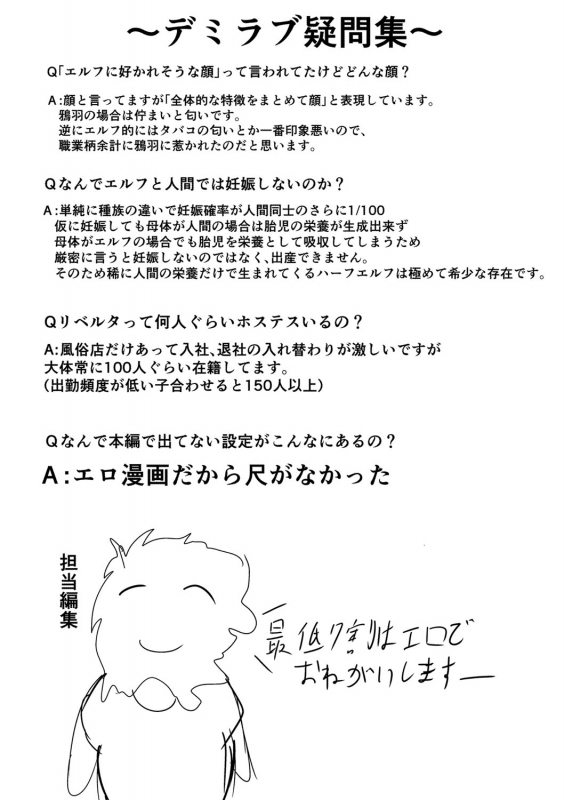 ～デミラブ疑問集～
Q「エルフに好かれそうな顔」って言われてたけどどんな顔？
A:顔と言ってますが「全体的な特徴をまとめて顔」と表現しています。
鴉羽の場合は佇まいと匂いです。
逆にエルフ的にはタバコの匂いとか一番印象悪いので、
職業柄余計に鴉羽に惹かれたのだと思います。
Qなんでエルフと人間では妊娠しないのか？
A:単純に種族の違いで妊娠確率が人間同士のさらに1/100
仮に妊娠しても母体が人間の場合は胎児の栄養が生成出来ず
母体がエルフの場合でも胎児を栄養として吸収してしまうため
厳密に言うと妊娠しないのではなく、出産できません。
そのため稀に人間の栄養だけで生まれてくるハーフエルフは極めて希少な存在です。
Qリベルタって何人ぐらいホステスいるの？
A:風俗店だけあって入社、退社の入れ替わりが激しいですが
大体常に100人ぐらい在籍してます。
(出勤頻度が低い子合わせると150人以上)
Qなんで本編で出てない設定がこんなにあるの？
A:エロ漫画だから尺がなかった
担当編集
最低7割はエロで
おねがいします―